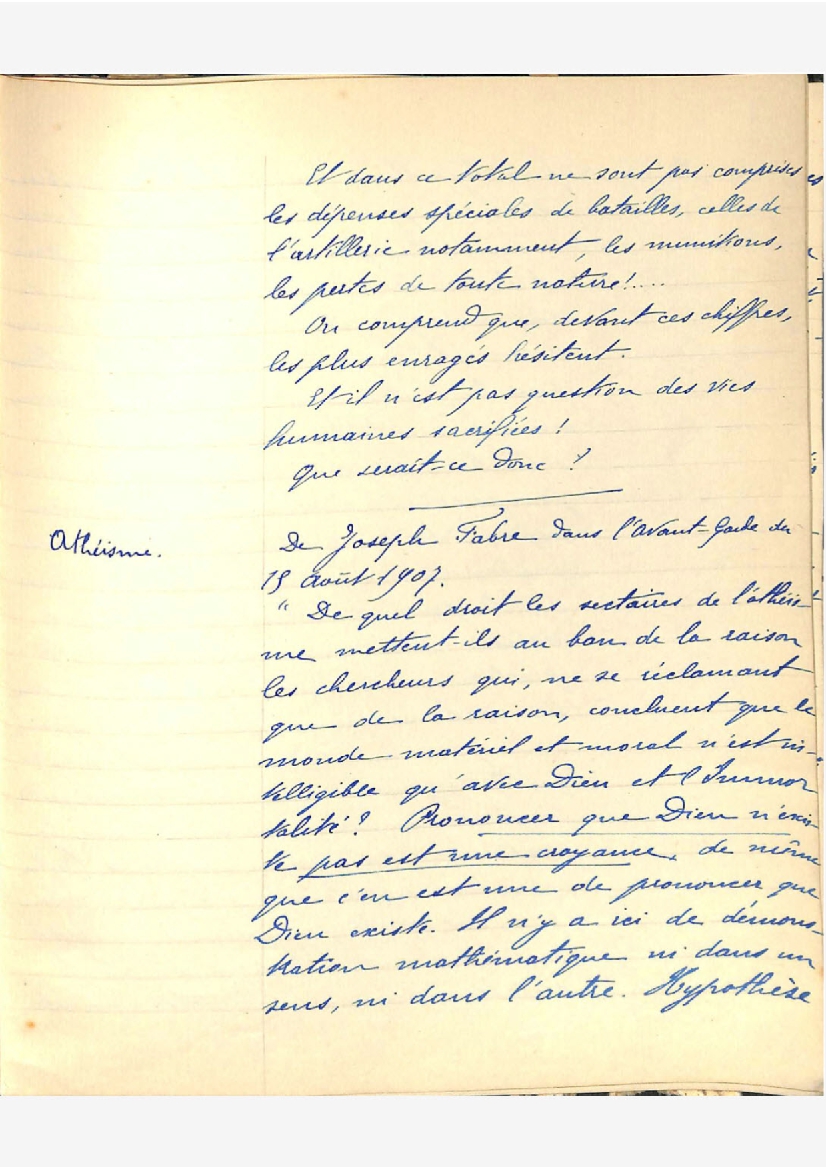 Et dans ce total ne sont pas comprises
les dépenses spéciales de batailles, celles de
l'artillerie notamment, les munitions,
les pertes de toute nature!....
On comprend que, devant ces chiffres,
les plus enragés hésitent.
Et il n'est pas question des vies
humaines sacrifiées !
Que serait-ce donc ?
Athéisme.
De Joseph Fabre dans l'Avant-Garde du
15 août 1907.
" De quel droit les sectaires de l'athéis-
me mettent-ils au ban de la raison
les chercheurs qui, ne se réclamant
que de la raison, concluent que le
monde matériel et moral n'est in-
telligible qu'avec Dieu et l'Immor
talité ? Prononcer que Dieu n'exis-
te pas est une croyance, de même
que c'en est une de prononcer que
Dieu existe. Il n'y a ici de démons-
tration mathématique ni dans un
sens, ni dans l'autre. Hypothèse